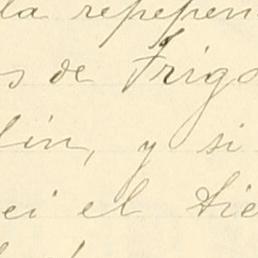 la repepen
s de Frigo
lin, y si
ei el tie